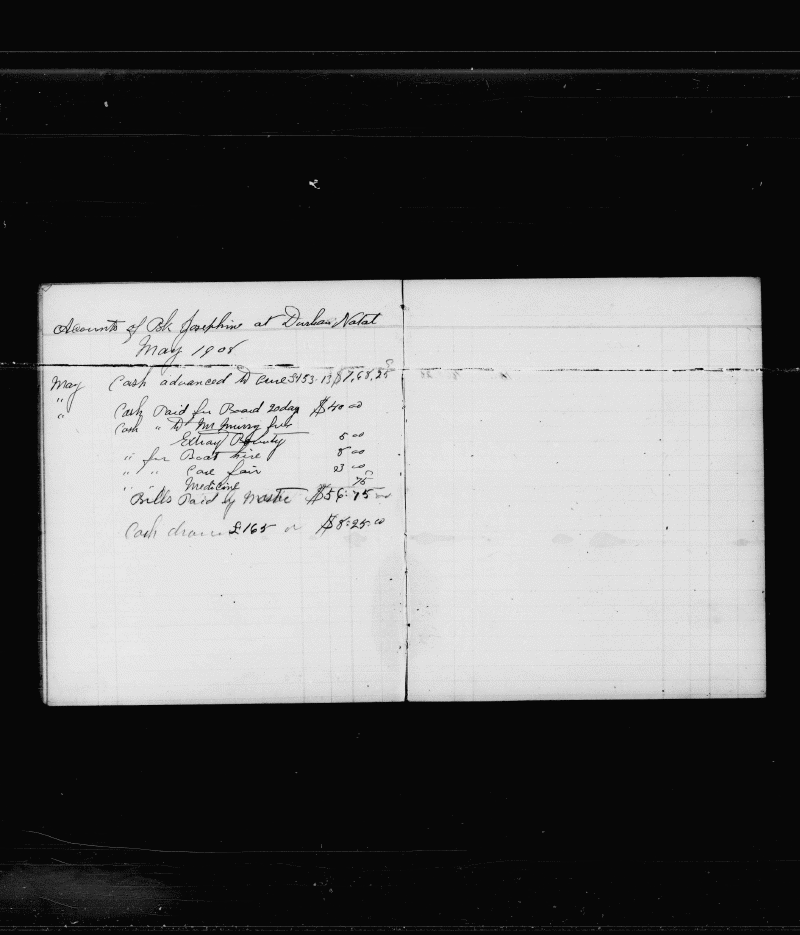 Acounts of Bk Josephine at Durban Natal
May 1908
May Cash advanced to Crue £153.13 $7,68.25
" Cash Paid for Board 20 day $40 00
" Cash " to Mr Murry for
Bounty 5 00
" for Boat hire 8 00
" " Care fair 03 00
" " Medicine 75
Bills Paid by Master $56.75
Cash drawn £165 or $8.25.00